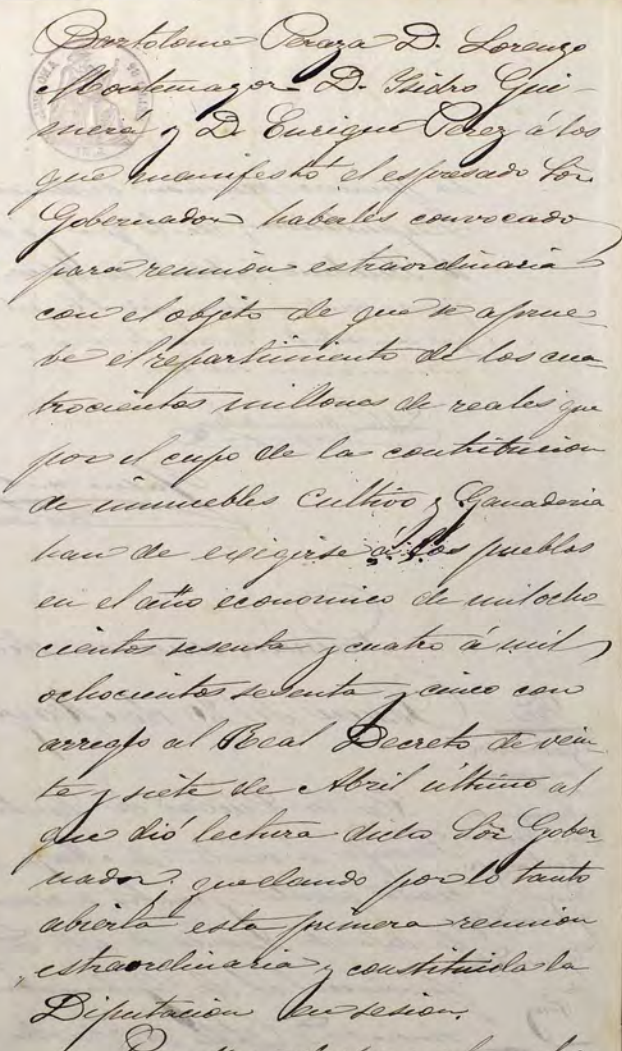 Bartolome Peraza D. Lorenzo
Montemayor D. Isidro Gui-
merá y D. Enrique Perez á los
que manifestó el espresado Sor.
Gobernador haberles convocado
para reunion estraordinaria
con el objeto de que se aprue-
be el repartimiento de los cua-
trocientos millones de reales que
por el cupo de la contribucion
de inmuebles Cultivo y Ganaderia
han de exigirse á los pueblos
en el año economico de mil ocho-
cientos sesenta y cuatro á mil
ochocientos sesenta y cinco con
arreglo al Real Decreto de vein-
te y siete de Abril último al
que dió lectura dicho Sor Gober-
nador: quedando por lo tanto
abierta esta primera reunion
estraordinaria y constituida la
Diputacion en sesion.